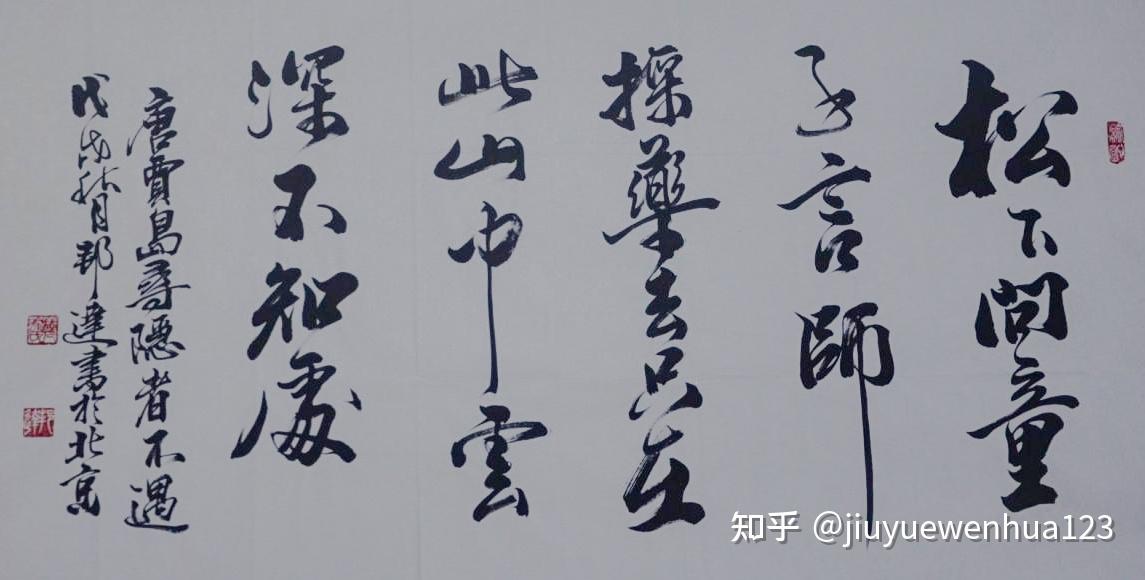 松下問童
子言師
採藥去只在
此山中雲
深不知處
唐賈島尋隱者不遇
戊戌秋月邦達書於北京
知乎 @jiuyuewenhua123